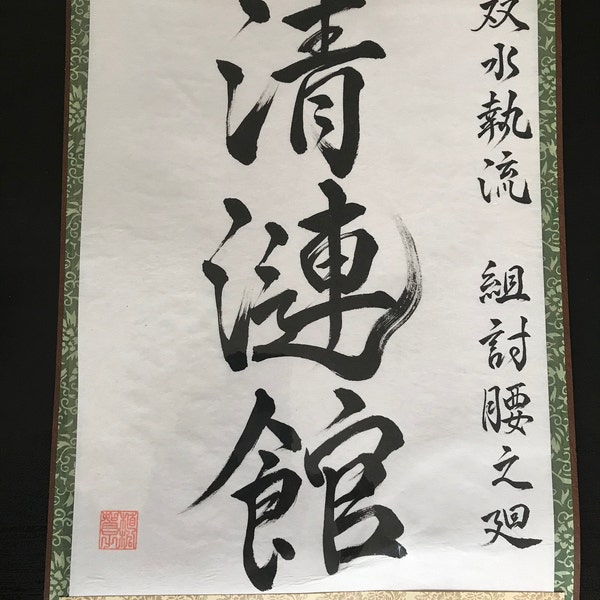 双水執流 組討腰之廻
清漣館